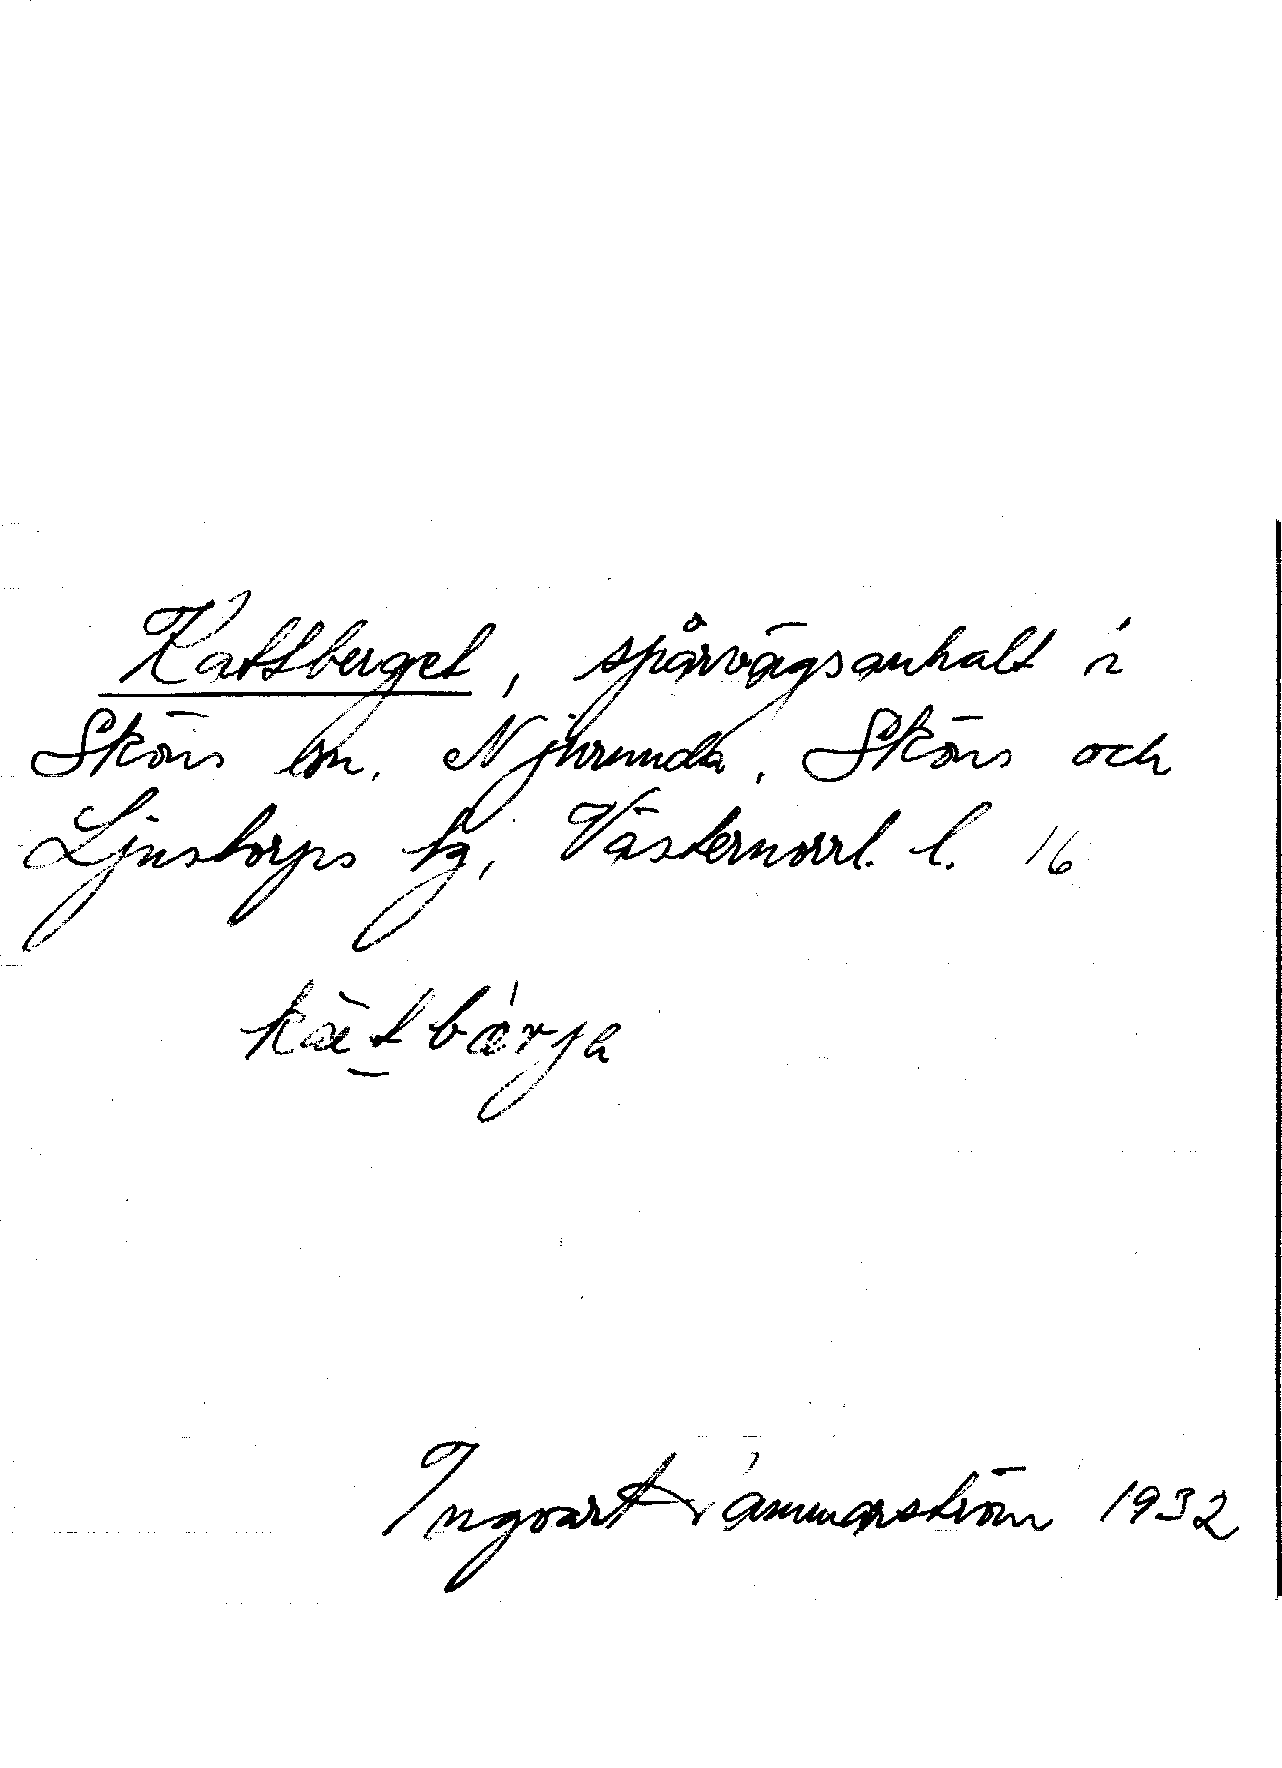 Kattberget, spårvägsanhalt i
Sköns sn, Njurunda, Sköns och
Ljustorps tg, Västernorrl. l. 16
kætbærja
Ingvart 1932